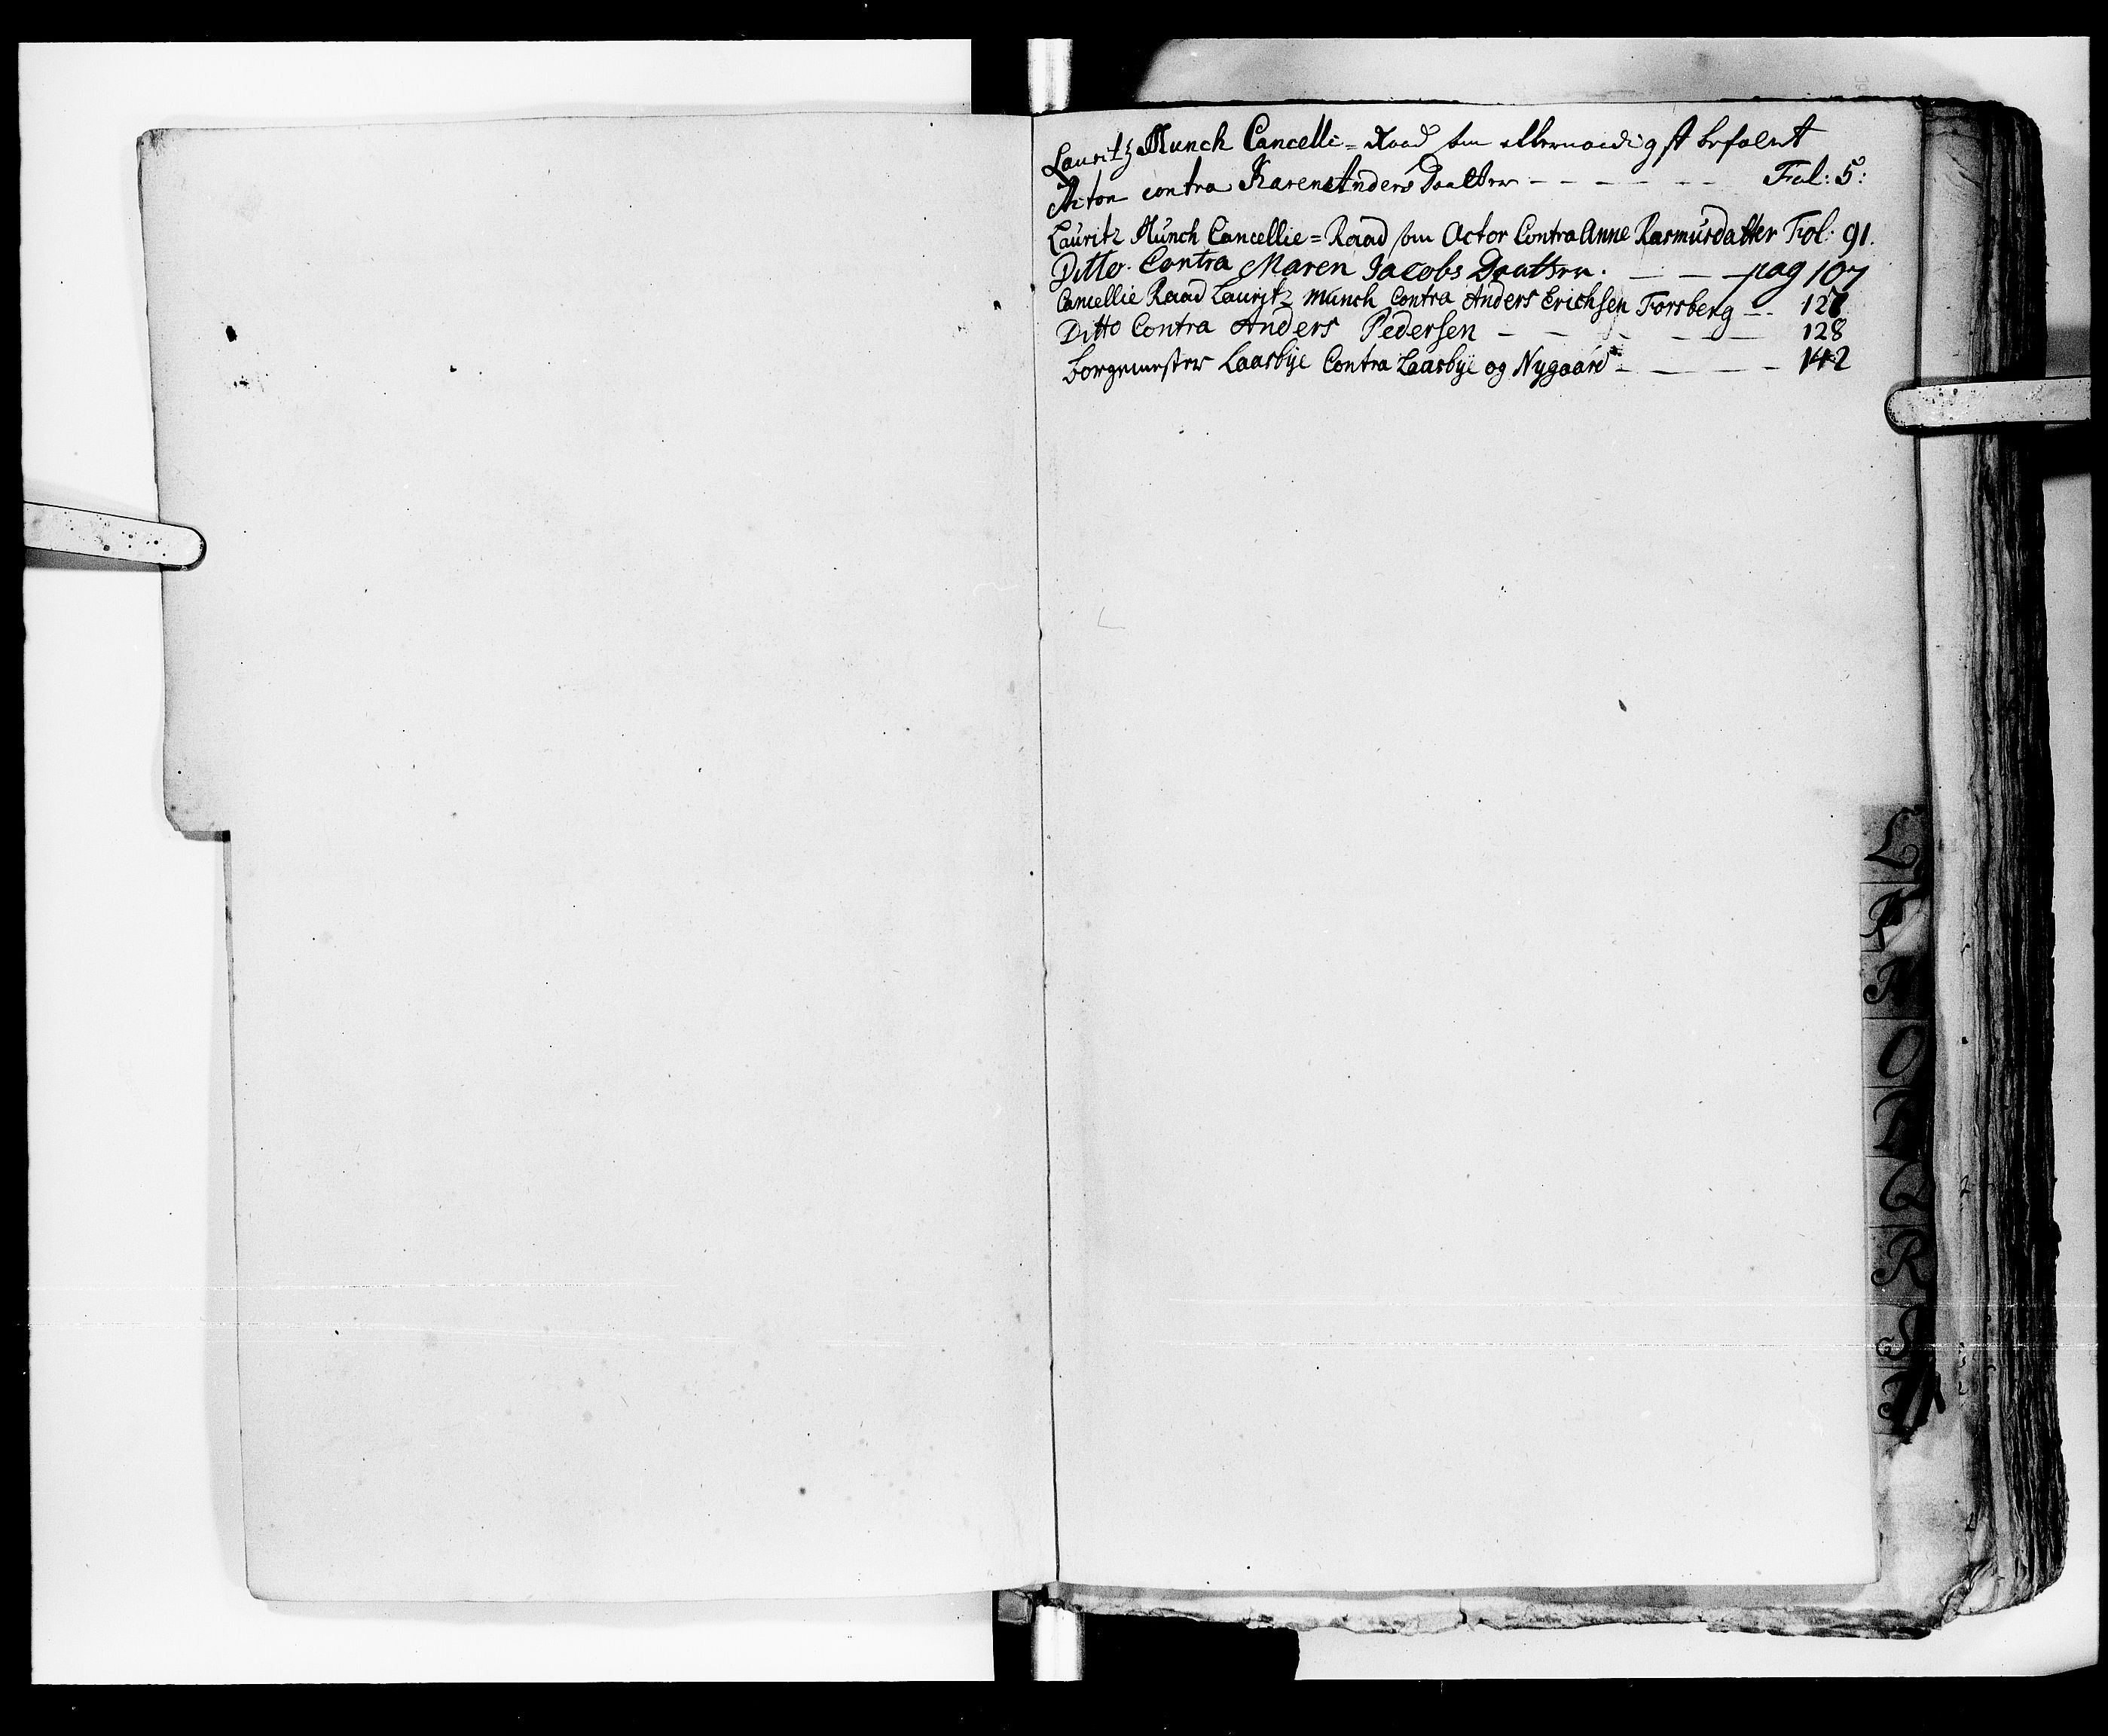 Lauritz Munch Cancelli=Raad som allernaadigst befalet
Actor contra Karen Anders Daatter - - - - - - Fol: 5:
Lauritz Munch Cancellie=Raad som Actor Contra Anne Rasmusdatter Fol: 91.
Ditto. Contra Maren Jacobs Daatter. - - - pag 107
Cancellie Raad Lauritz Munch Contra Anders Erichsen Forsberg - - 127
Ditto Contra Anders Pedersen - - - - - - 128
borgemester Laasbye Contra Laasbye og Nygaard - - - - 142
L
O
Q
R
S